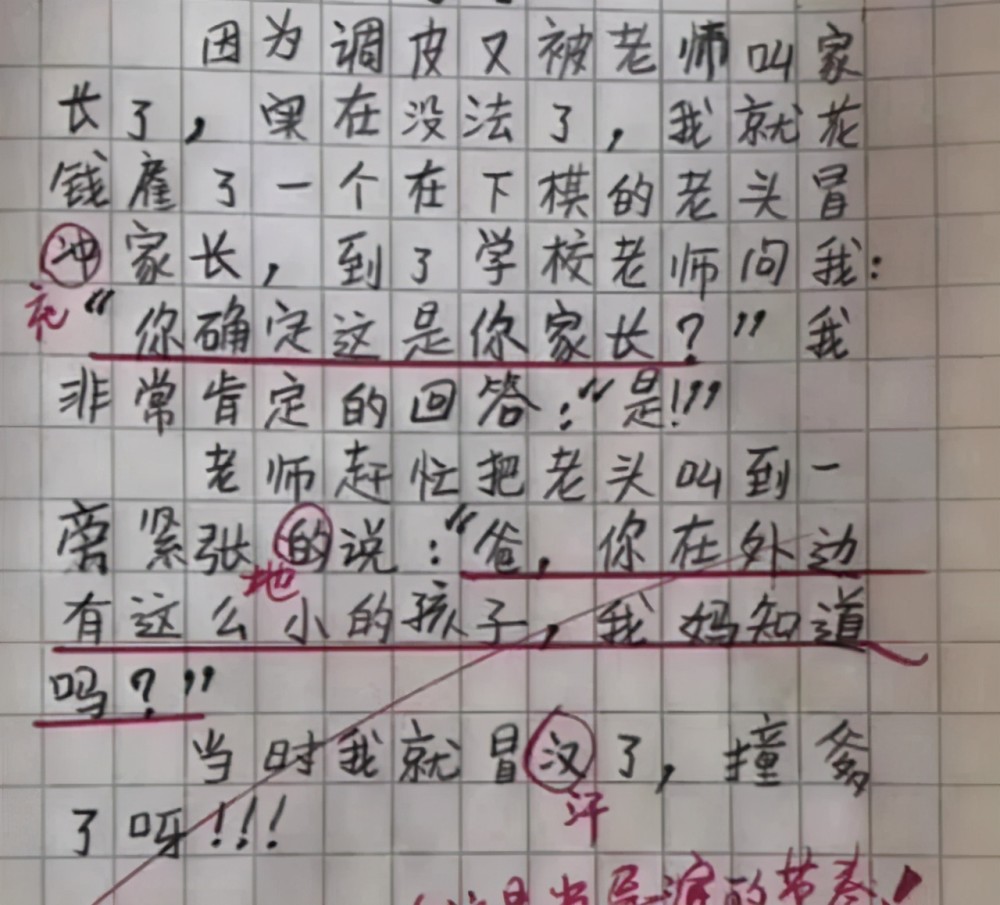 因为调皮又被老师叫家
长了，实在没法了，我就花
钱雇了一个在下棋的老头冒
冲家长，到了学校老师问我：
充
“你确定这是你家长？”我
非常肯定的回答：“是！”
老师赶忙把老头叫到一
旁紧张的说：“爸，你在外边
地
有这么小的孩子，我妈知道
吗？”
当时我就冒汉了，撞爹
汗
了呀！！！
是当导演的节奏！